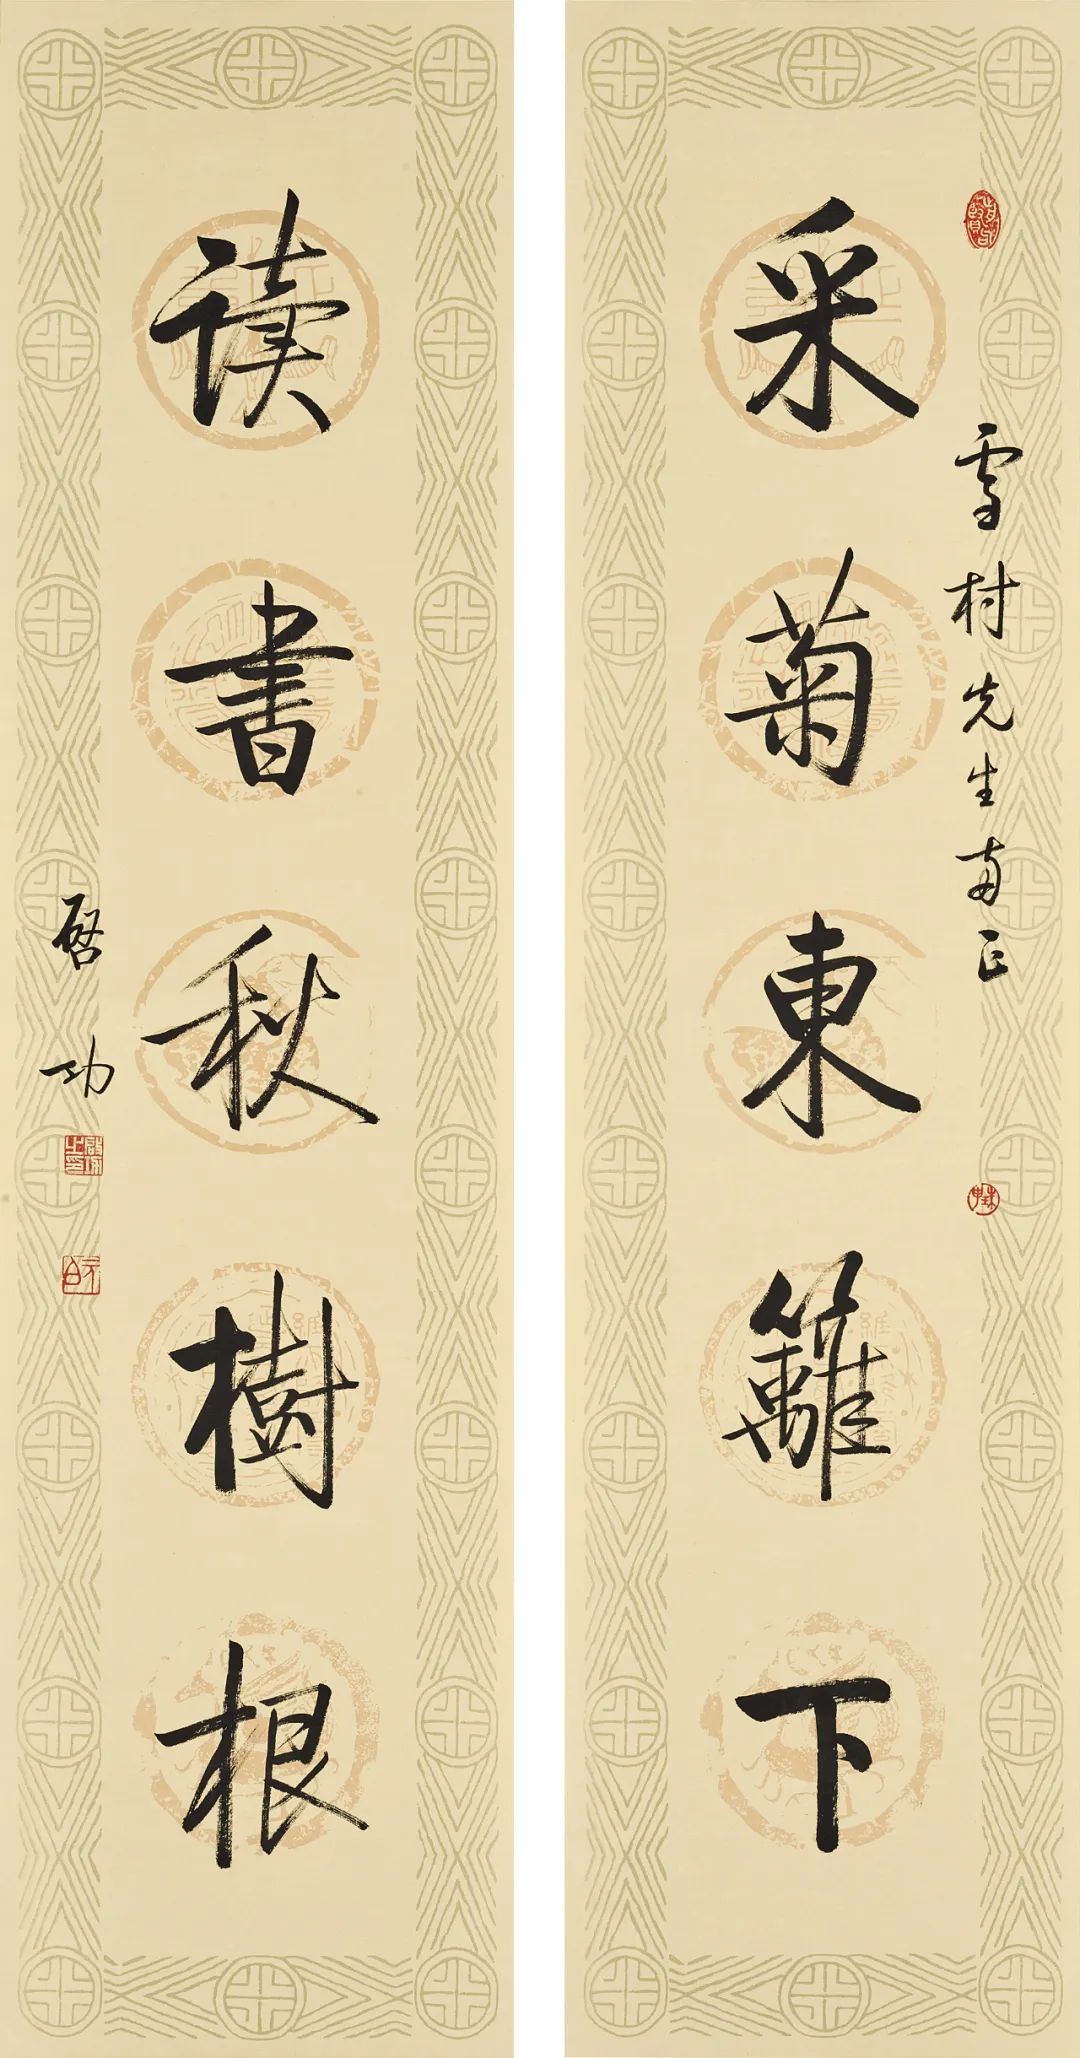 采菊東籬下
雪村先生両正
读書秋樹根
启功